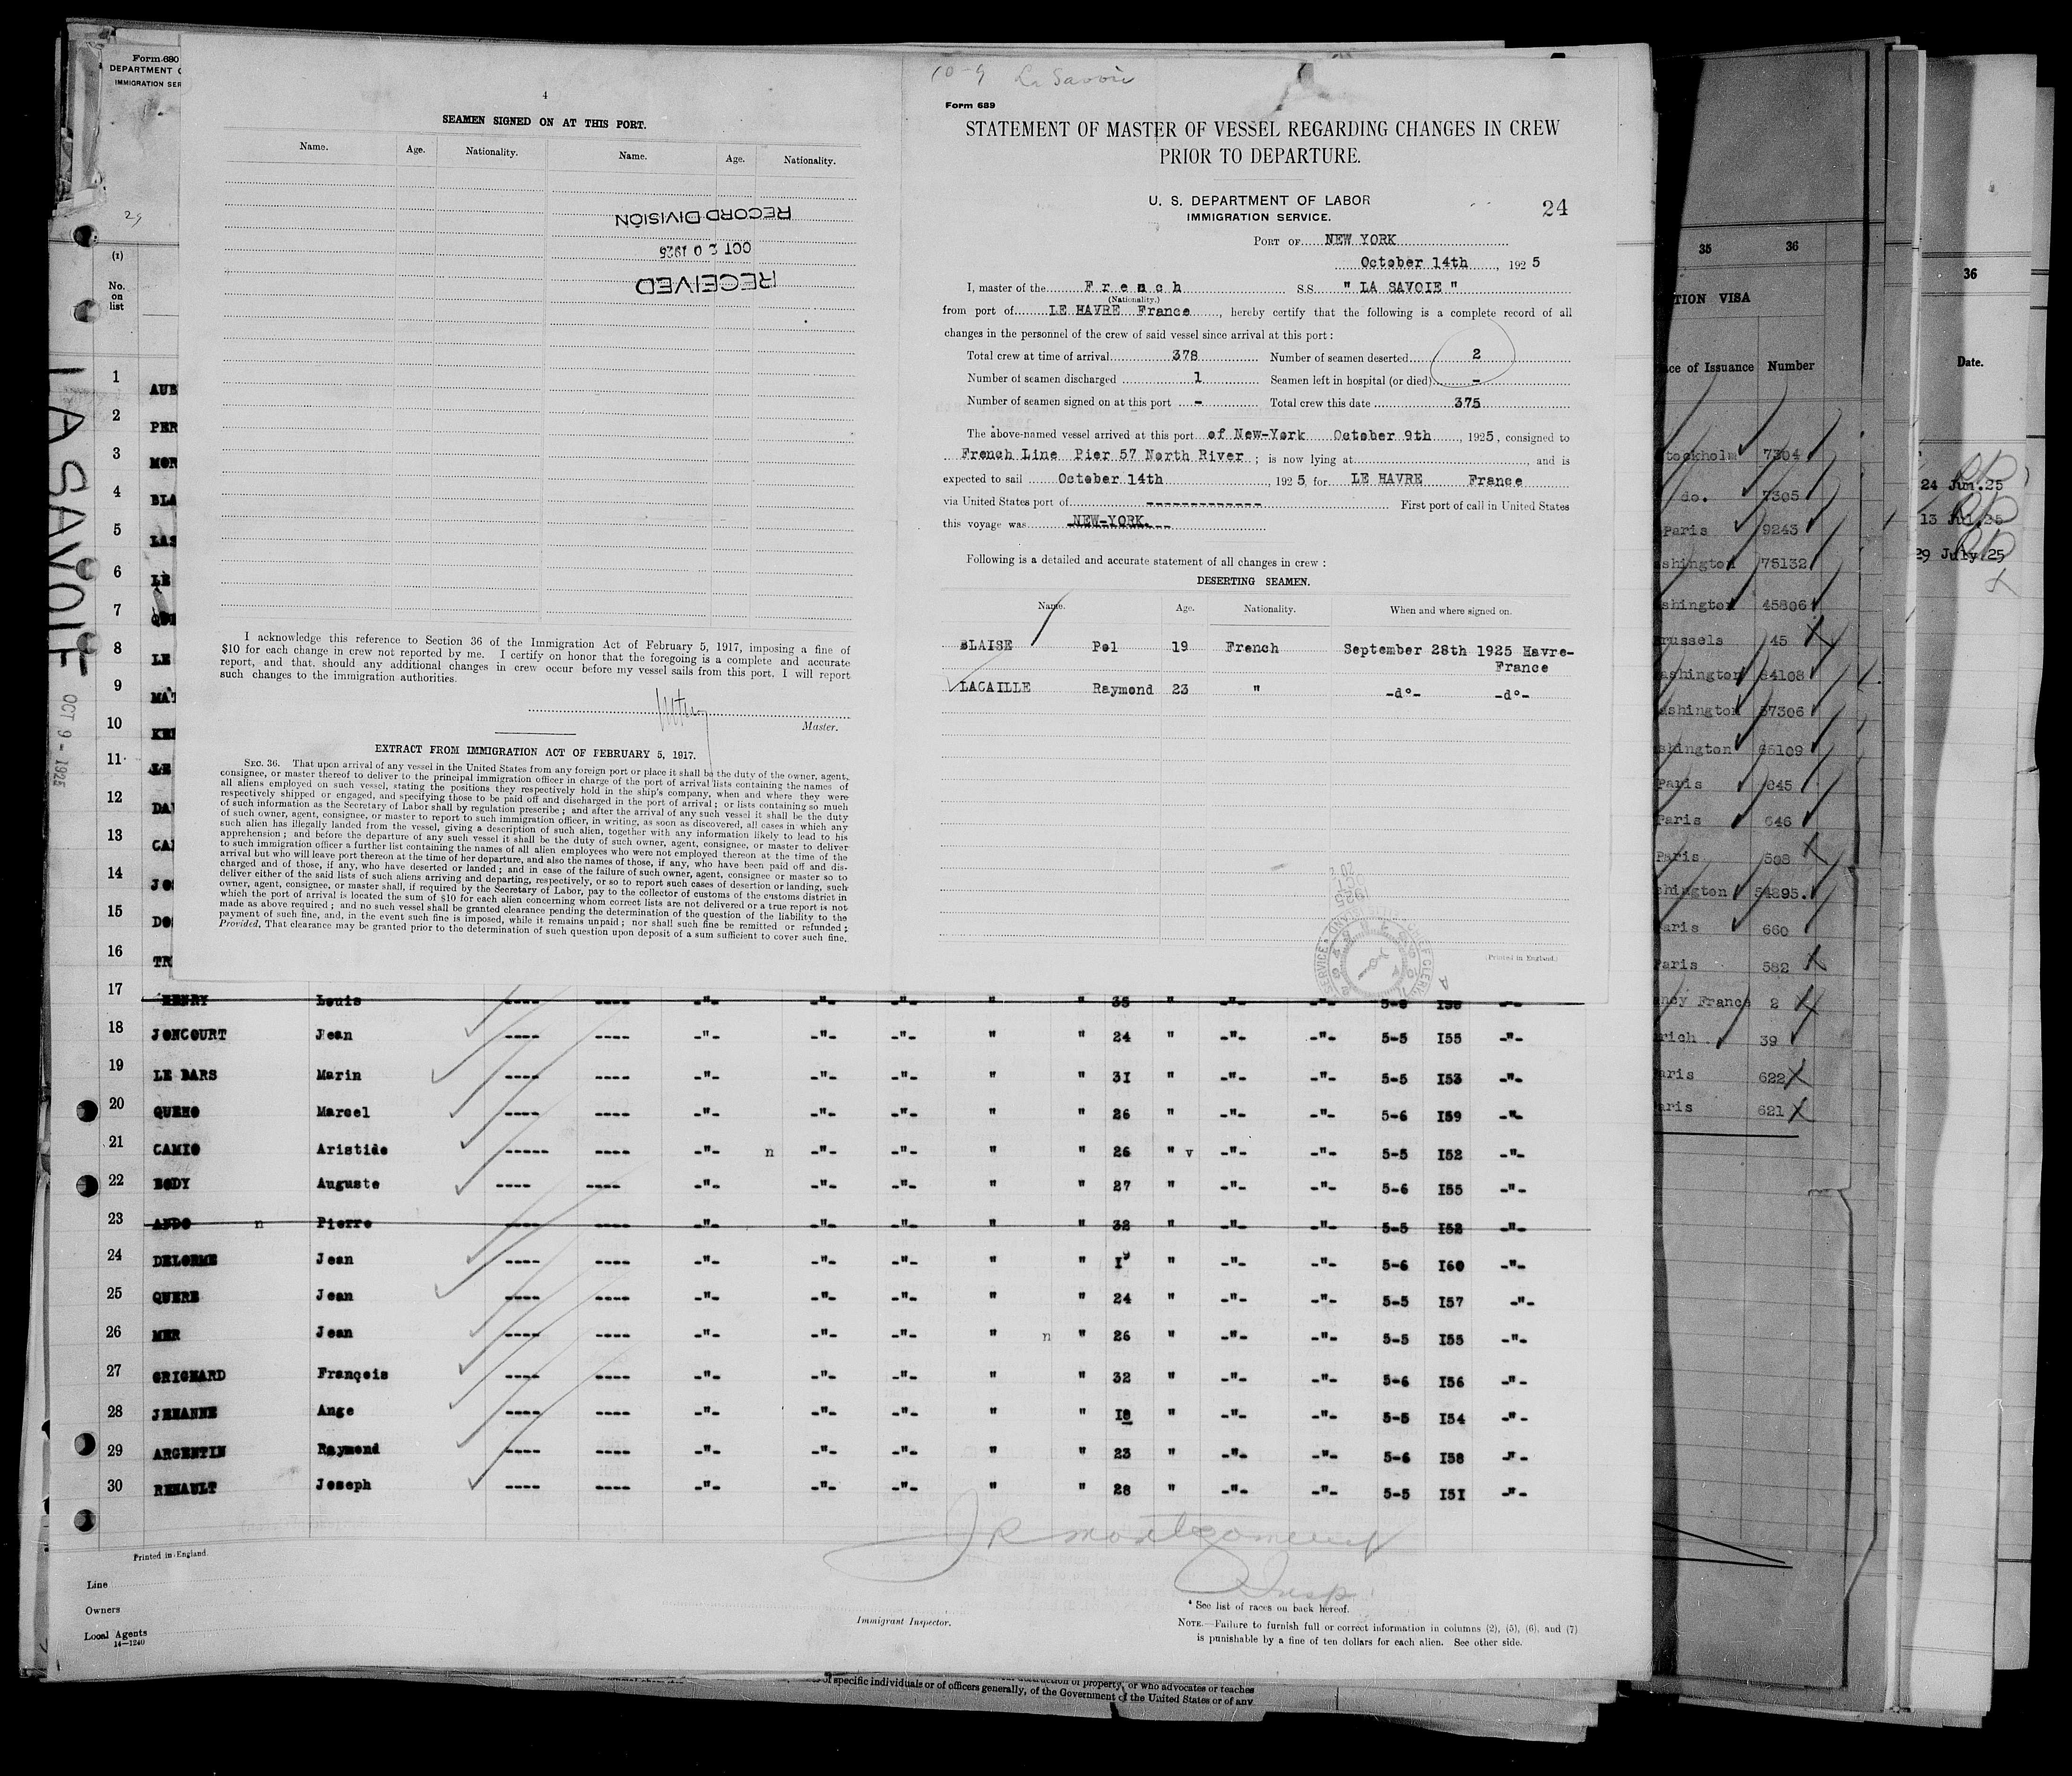 Form 680
DEPARTMENT
IMMIGRATION SER
29
(1)
No.
on
list
LA SAVOIE
OCT 9 - 1925
1 AUB
2 PER
3 MOR
4 BLA
5 LAS
6 LE
7 QUE
8 LE
9 MAT
10
11 LE
12 DA
13 CA
14 JO
15 DO
16 TR
4
SEAMEN SIGNED ON AT THIS PORT.
Name. Age. Nationality. Name. Age. Nationality.
RECEIVED
OCT 20 1925
RECORD DIVISION
I acknowledge this reference to Section 36 of the Immigration Act of February 5, 1917, imposing a fine of
$10 for each change in crew not reported by me. I certify on honor that the foregoing is a complete and accurate
report, and that, should any additional changes in crew occur before my vessel sails from this port, I will report
such changes to the immigration authorities.
Master.
EXTRACT FROM IMMIGRATION ACT OF FEBRUARY 5, 1917.
SEC. 36. That upon arrival of any vessel in the United States from any foreign port or place it shall be the duty of the owner, agent,
consignee, or master thereof to deliver to the principal immigration officer in charge of the port of arrival lists containing the names of
all aliens employed on such vessel, stating the positions they respectively hold in the ship's company, when and where they were
respectively shipped or engaged, and specifying those to be paid off and discharged in the port of arrival; or lists containing so much
of such information as the Secretary of Labor shall by regulation prescribe; and after the arrival of any such vessel it shall be the duty
of such owner, agent, consignee, or master to report to such immigration officer, in writing, as soon as discovered, all cases in which any
such alien has illegally landed from the vessel, giving a description of such alien, together with any information likely to lead to his
apprehension; and before the departure of any such vessel it shall be the duty of such owner, agent, consignee, or master to deliver
to such immigration officer a further list containing the names of all alien employees who were not employed thereon at the time of the
arrival but who will leave port thereon at the time of her departure, and also the names of those, if any, who have been paid off and dis-
charged and of those, if any, who have deserted or landed; and in case of the failure of such owner, agent, consignee or master so to
deliver either of the said lists of such aliens arriving and departing, respectively, or so to report such cases of desertion or landing, such
owner, agent, consignee, or master shall, if required by the Secretary of Labor, pay to the collector of customs of the customs district in
which the port of arrival is located the sum of $10 for each alien concerning whom correct lists are not delivered or a true report is not
made as above required; and no such vessel shall be granted clearance pending the determination of the question of the liability to the
payment of such fine, and, in the event such fine is imposed, while it remains unpaid; nor shall such fine be remitted or refunded:
Provided, That clearance may be granted prior to the determination of such question upon deposit of a sum sufficient to cover such fine.
10-9 La Savoie
Form 689
STATEMENT OF MASTER OF VESSEL REGARDING CHANGES IN CREW
PRIOR TO DEPARTURE.
U. S. DEPARTMENT OF LABOR
IMMIGRATION SERVICE.
24
PORT OF NEW YORK
October 14th, 1925
I, master of the French S.S. " LA SAVOIE "
(Nationality.)
from port of LE HAVRE France, hereby certify that the following is a complete record of all
changes in the personnel of the crew of said vessel since arrival at this port:
Total crew at time of arrival 378 Number of seamen deserted 2
Number of seamen discharged 1 Seamen left in hospital (or died) -
Number of seamen signed on at this port - Total crew this date 375
The above-named vessel arrived at this port of New-York October 9th, 1925, consigned to
French Line Pier 57 North River; is now lying at , and is
expected to sail October 14th, 1925, for LE HAVRE France
via United States port of ------------- First port of call in United States
this voyage was NEW-YORK.
Following is a detailed and accurate statement of all changes in crew:
DESERTING SEAMEN.
Name. Age. Nationality. When and where signed on.
BLAISE Pol 19 French September 28th 1925 Havre-
France
LACAILLE Raymond 23 " -d°- -d°-
(Printed in England.)
17 HENRY Louis ---- ---- -"- -"- -"- " " 35 " -"- -"- 5-8 -"-
18 JONCOURT Jean ---- ---- -"- -"- -"- " " 24 " -"- -"- 5-5 I55 -"-
19 LE BARS Marin ---- ---- -"- -"- -"- " " 3I " -"- -"- 5-5 I53 -"-
20 QUEMO Marcel ---- ---- -"- -"- -"- " " 26 " -"- -"- 5-6 I59 -"-
21 CAMIO Aristide ----- ---- -"- n -"- -"- " " 26 " v -"- -"- 5-5 I52 -"-
22 BODY Auguste ---- ---- -"- -"- -"- " " 27 " -"- -"- 5-6 I55 -"-
23 ANDO n Pierre ---- ---- -"- -"- -"- " " 32 " -"- -"- 5-5 I52 -"-
24 DELORME Jean ---- ---- -"- -"- -"- " " I9 " -"- -"- 5-6 I60 -"-
25 QUERE Jean ---- ---- -"- -"- -"- " " 24 " -"- -"- 5-5 I57 -"-
26 MER Jean ---- ---- -"- -"- -"- " n " 26 " -"- -"- 5-5 I55 -"-
27 GRIGNARD François ---- ---- -"- -"- -"- " " 32 " -"- -"- 5-6 I56 -"-
28 JEHANNE Ange ---- ---- -"- -"- -"- " " I8 " -"- -"- 5-5 I54 -"-
29 ARGENTIN Raymond ---- ---- -"- -"- -"- " " 23 " -"- -"- 5-6 I58 -"-
30 RENAULT Joseph ---- ---- -"- -"- -"- " " 28 " -"- -"- 5-5 I5I -"-
J R Montgomery
Insp
Printed in England.
Line
Owners
Local Agents
14—1240
Immigrant Inspector.
* See list of races on back hereof.
NOTE.—Failure to furnish full or correct information in columns (2), (5), (6), and (7)
is punishable by a fine of ten dollars for each alien. See other side.
of property, or who advocates or teaches
of specific individuals or of officers generally, of the Government of the United States or of any
35 36
TION VISA
ce of Issuance Number
tockholm 7304
do. 7305
Paris 9243
shington 75132
shington 45806
russels 45
ashington 64108
ashington 57306
shington 65109
Paris 645
Paris 646
Paris 508
shington 54895.
aris 660
Paris 582
ncy France 2
rich 39
aris 622
aris 621
36
Date.
24 Jun.25
13 Jul.25
29 July.25